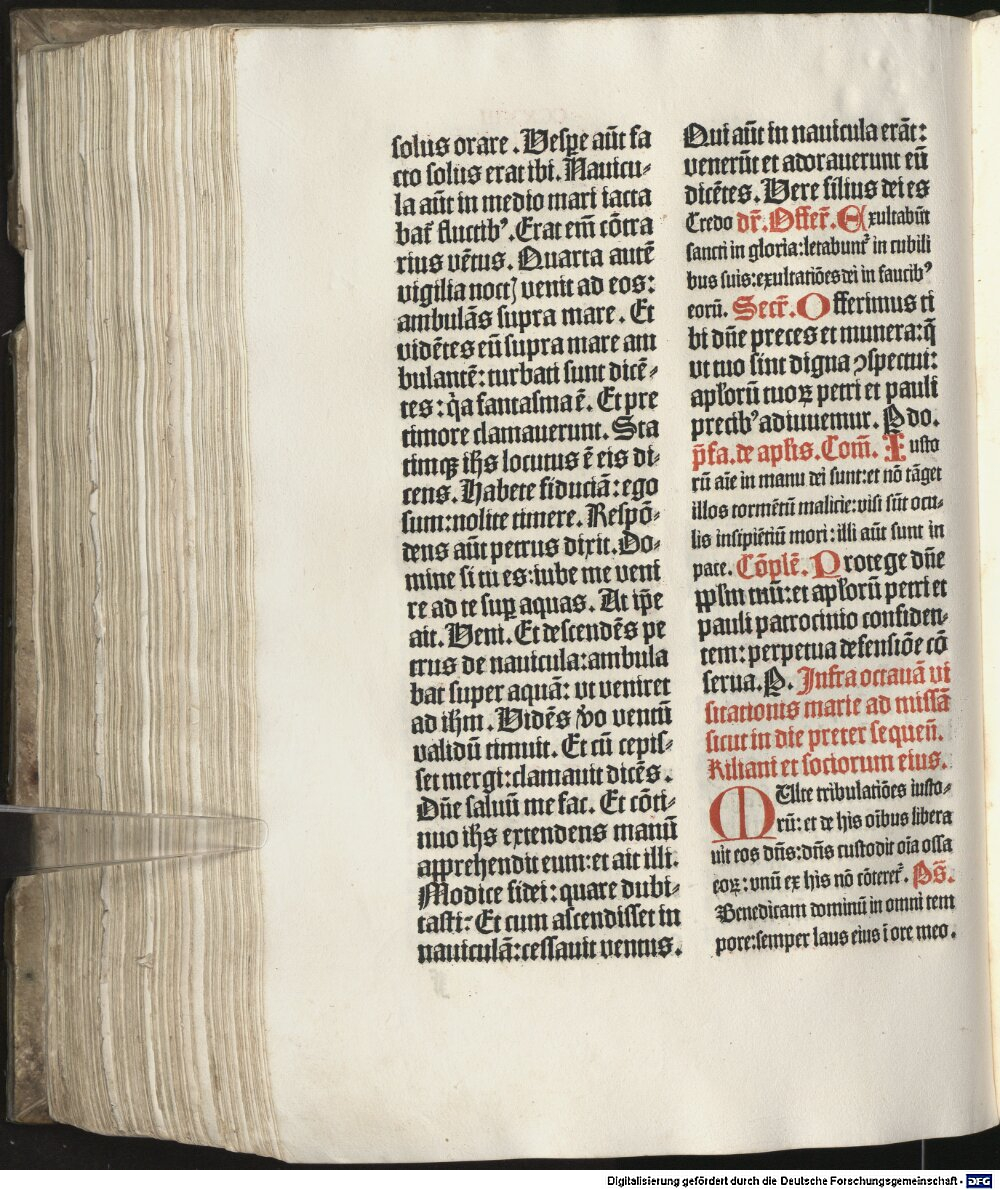 solus orare. Vespe aūt fa
cto solus erat ibi. Nauicu-
la aūt in medio mari iacta
bat̄ fluctibꝰ. Erat em̄ cōtra
rius vētus. Quarta autē
vigilia noctꝭ venit ad eos:
ambulās supra mare. Et
vidētes eū supra mare am
bulantē: turbati sunt dicē-
tes: q̇a fantasma ē. Et pre
timore clamauerunt. Sta
timqꝫ ihs locutus ē eis di-
cens. Habete fiduciā: ego
sum: nolite timere. Respō-
dens aūt petrus dixit. Do-
mine si tu es: iube me veni
re ad te suꝑ aquas. At ip̄e
ait. Veni. Et descendēs pe
trus de nauicula: ambula
bat super aquā: vt veniret
ad ihm̄. Vidēs ꝟo ventū
validū timuit. Et cū cepis-
set mergi: clamauit dicēs.
Dn̄e saluū me fac. Et cōti-
nuo ihs extendens manū
apprehendit eum: et ait illi.
Modice fidei: quare dubi-
tasti: Et cum ascendisset in
nauiculā: cessauit ventus.
Qui aūt in nauicula erāt:
venerūt et adorauerunt eū
dicētes. Vere filius dei es
Credo dr̄. Offer̄. Exultabūt
sancti in gloria: letabunt̄ in cubili
bus suis: exultatiōes dei in faucibꝰ
eorū. Secr̄. Offerimus ti
bi dn̄e preces et munera: q̄
vt tuo sint digna ꝯspectui:
apl̓orū tuoꝝ petri et pauli
precibꝰ adiuuemur. P do.
p̄fa. de apl̓is. Com̄. Iusto
rū aīe in manu dei sunt: et nō tāget
illos tormētū malicie: visi sūt ocu-
lis insipiētiū mori: illi aūt sunt in
pace. Cōplē. Protege dn̄e
ppl̓m tuū: et apl̓orū petri et
pauli patrocinio confiden-
tem: perpetua defensiōe cō
serua. P. Infra octauā vi
sitationis marie ad missā
sicut in die preter sequen̄.
Kiliani et sociorum eius.
MUlte tribulatiōes iusto-
rū: et de his oībus libera
uit eos dn̄s: dn̄s custodit oīa ossa
eoꝝ: vnū ex his nō cōteret̄. Ps̄.
Benedicam dominū in omni tem
pore: semper laus eius ī ore meo.
Digitalisierung gefördert durch die Deutsche Forschungsgemeinschaft - DFG